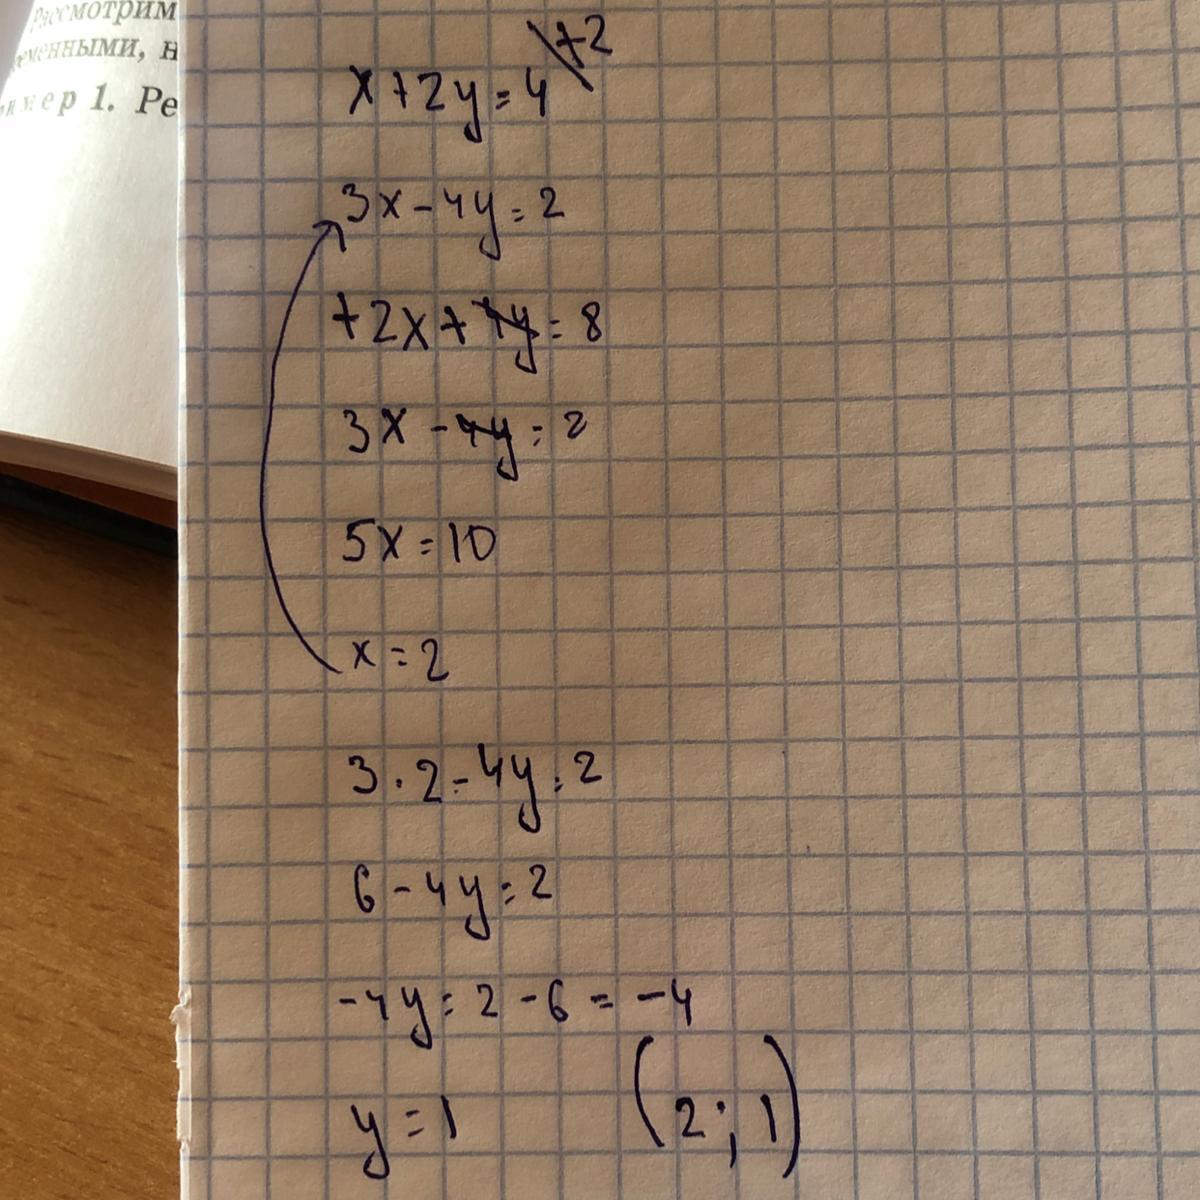 Рассмотрим
ременными, н
имер 1. Ре
+2
x+2y=4
3x-4y=2
+2x+4y=8
3x-4y=2
5x=10
x=2
3·2-4y=2
6-4y=2
-4y=2-6=-4
y=1 (2;1)